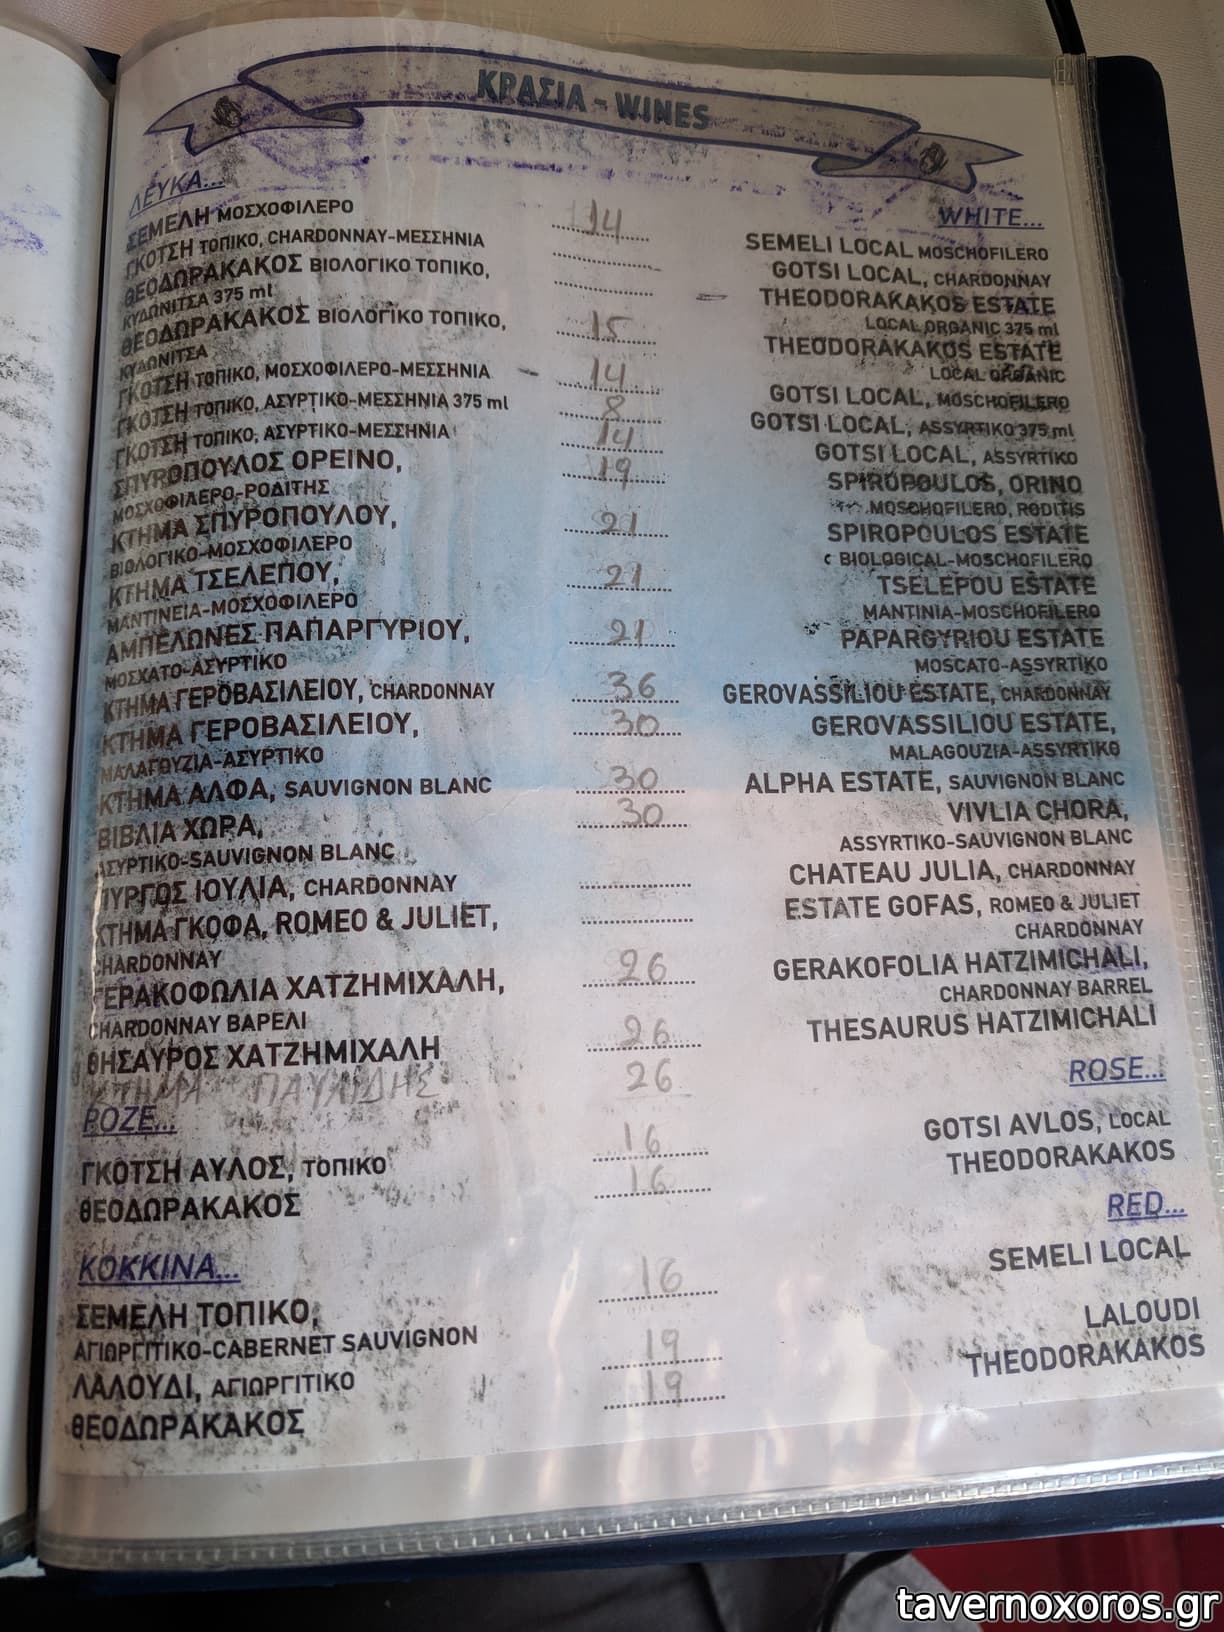 ΚΡΑΣΙΑ - WINES
ΛΕΥΚΑ...
WHITE...
ΣΕΜΕΛΗ ΜΟΣΧΟΦΙΛΕΡΟ 14 SEMELI LOCAL MOSCHOFILERO
ΓΚΟΤΣΗ ΤΟΠΙΚΟ, CHARDONNAY-ΜΕΣΣΗΝΙΑ GOTSI LOCAL, CHARDONNAY
ΘΕΟΔΩΡΑΚΑΚΟΣ ΒΙΟΛΟΓΙΚΟ ΤΟΠΙΚΟ, THEODORAKAKOS ESTATE
ΚΥΔΩΝΙΤΣΑ 375 ml LOCAL ORGANIC 375 ml
ΘΕΟΔΩΡΑΚΑΚΟΣ ΒΙΟΛΟΓΙΚΟ ΤΟΠΙΚΟ, 15 THEODORAKAKOS ESTATE
ΚΥΔΩΝΙΤΣΑ LOCAL ORGANIC
ΓΚΟΤΣΗ ΤΟΠΙΚΟ, ΜΟΣΧΟΦΙΛΕΡΟ-ΜΕΣΣΗΝΙΑ 14 GOTSI LOCAL, MOSCHOFILERO
ΓΚΟΤΣΗ ΤΟΠΙΚΟ, ΑΣΥΡΤΙΚΟ-ΜΕΣΣΗΝΙΑ 375 ml 8 GOTSI LOCAL, ASSYRTIKO 375 ml
ΓΚΟΤΣΗ ΤΟΠΙΚΟ, ΑΣΥΡΤΙΚΟ-ΜΕΣΣΗΝΙΑ 14 GOTSI LOCAL, ASSYRTIKO
ΣΠΥΡΟΠΟΥΛΟΣ ΟΡΕΙΝΟ, 19 SPIROPOULOS, ORINO
ΜΟΣΧΟΦΙΛΕΡΟ-ΡΟΔΙΤΗΣ MOSCHOFILERO, RODITIS
ΚΤΗΜΑ ΣΠΥΡΟΠΟΥΛΟΥ, 21 SPIROPOULOS ESTATE
ΒΙΟΛΟΓΙΚΟ-ΜΟΣΧΟΦΙΛΕΡΟ BIOLOGICAL-MOSCHOFILERO
ΚΤΗΜΑ ΤΣΕΛΕΠΟΥ, 21 TSELEPOU ESTATE
ΜΑΝΤΙΝΕΙΑ-ΜΟΣΧΟΦΙΛΕΡΟ MANTINIA-MOSCHOFILERO
ΑΜΠΕΛΩΝΕΣ ΠΑΠΑΡΓΥΡΙΟΥ, 21 PAPARGYRIOU ESTATE
ΜΟΣΧΑΤΟ-ΑΣΥΡΤΙΚΟ MOSCATO-ASSYRTIKO
ΚΤΗΜΑ ΓΕΡΟΒΑΣΙΛΕΙΟΥ, CHARDONNAY 36 GEROVASSILIOU ESTATE, CHARDONNAY
ΚΤΗΜΑ ΓΕΡΟΒΑΣΙΛΕΙΟΥ, 30 GEROVASSILIOU ESTATE,
ΜΑΛΑΓΟΥΖΙΑ-ΑΣΥΡΤΙΚΟ MALAGOUZIA-ASSYRTIKO
ΚΤΗΜΑ ΑΛΦΑ, SAUVIGNON BLANC 30 ALPHA ESTATE, SAUVIGNON BLANC
ΒΙΒΛΙΑ ΧΩΡΑ, 30 VIVLIA CHORA,
ΑΣΥΡΤΙΚΟ-SAUVIGNON BLANC ASSYRTIKO-SAUVIGNON BLANC
ΠΥΡΓΟΣ ΙΟΥΛΙΑ, CHARDONNAY CHATEAU JULIA, CHARDONNAY
ΚΤΗΜΑ ΓΚΟΦΑ, ROMEO & JULIET, ESTATE GOFAS, ROMEO & JULIET
CHARDONNAY CHARDONNAY
ΓΕΡΑΚΟΦΩΛΙΑ ΧΑΤΖΗΜΙΧΑΛΗ, 26 GERAKOFOLIA HATZIMICHALI,
CHARDONNAY ΒΑΡΕΛΙ CHARDONNAY BARREL
ΘΗΣΑΥΡΟΣ ΧΑΤΖΗΜΙΧΑΛΗ 26 THESAURUS HATZIMICHALI
ΚΤΗΜΑ ΠΑΥΛΙΔΗΣ 26
ΡΟΖΕ...
ROSE...
ΓΚΟΤΣΗ ΑΥΛΟΣ, ΤΟΠΙΚΟ 16 GOTSI AVLOS, LOCAL
ΘΕΟΔΩΡΑΚΑΚΟΣ 16 THEODORAKAKOS
ΚΟΚΚΙΝΑ...
RED...
ΣΕΜΕΛΗ ΤΟΠΙΚΟ, 16 SEMELI LOCAL
ΑΓΙΩΡΓΙΤΙΚΟ-CABERNET SAUVIGNON
ΛΑΛΟΥΔΙ, ΑΓΙΩΡΓΙΤΙΚΟ 19 LALOUDI
ΘΕΟΔΩΡΑΚΑΚΟΣ 19 THEODORAKAKOS
tavernoxoros.gr